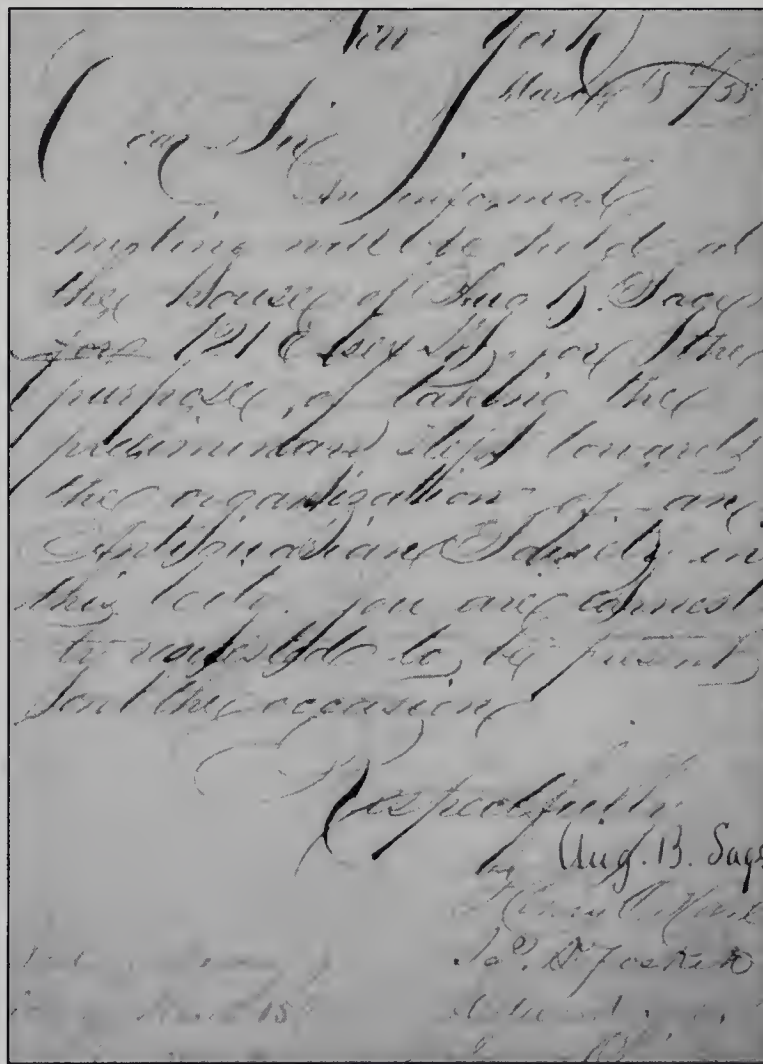 New York
March 15th/58
Dear Sir
An informal
meeting will be held at
the House of Aug B. Sage
121 Essex St. for the
purpose of taking the
preliminary steps towards
the organization of an
Antiquarian Society in
this city. you are earnest
ly requested to be present
on the occasion
Respectfully
Aug. B. Sage
Jas. D. Foskett
March 15